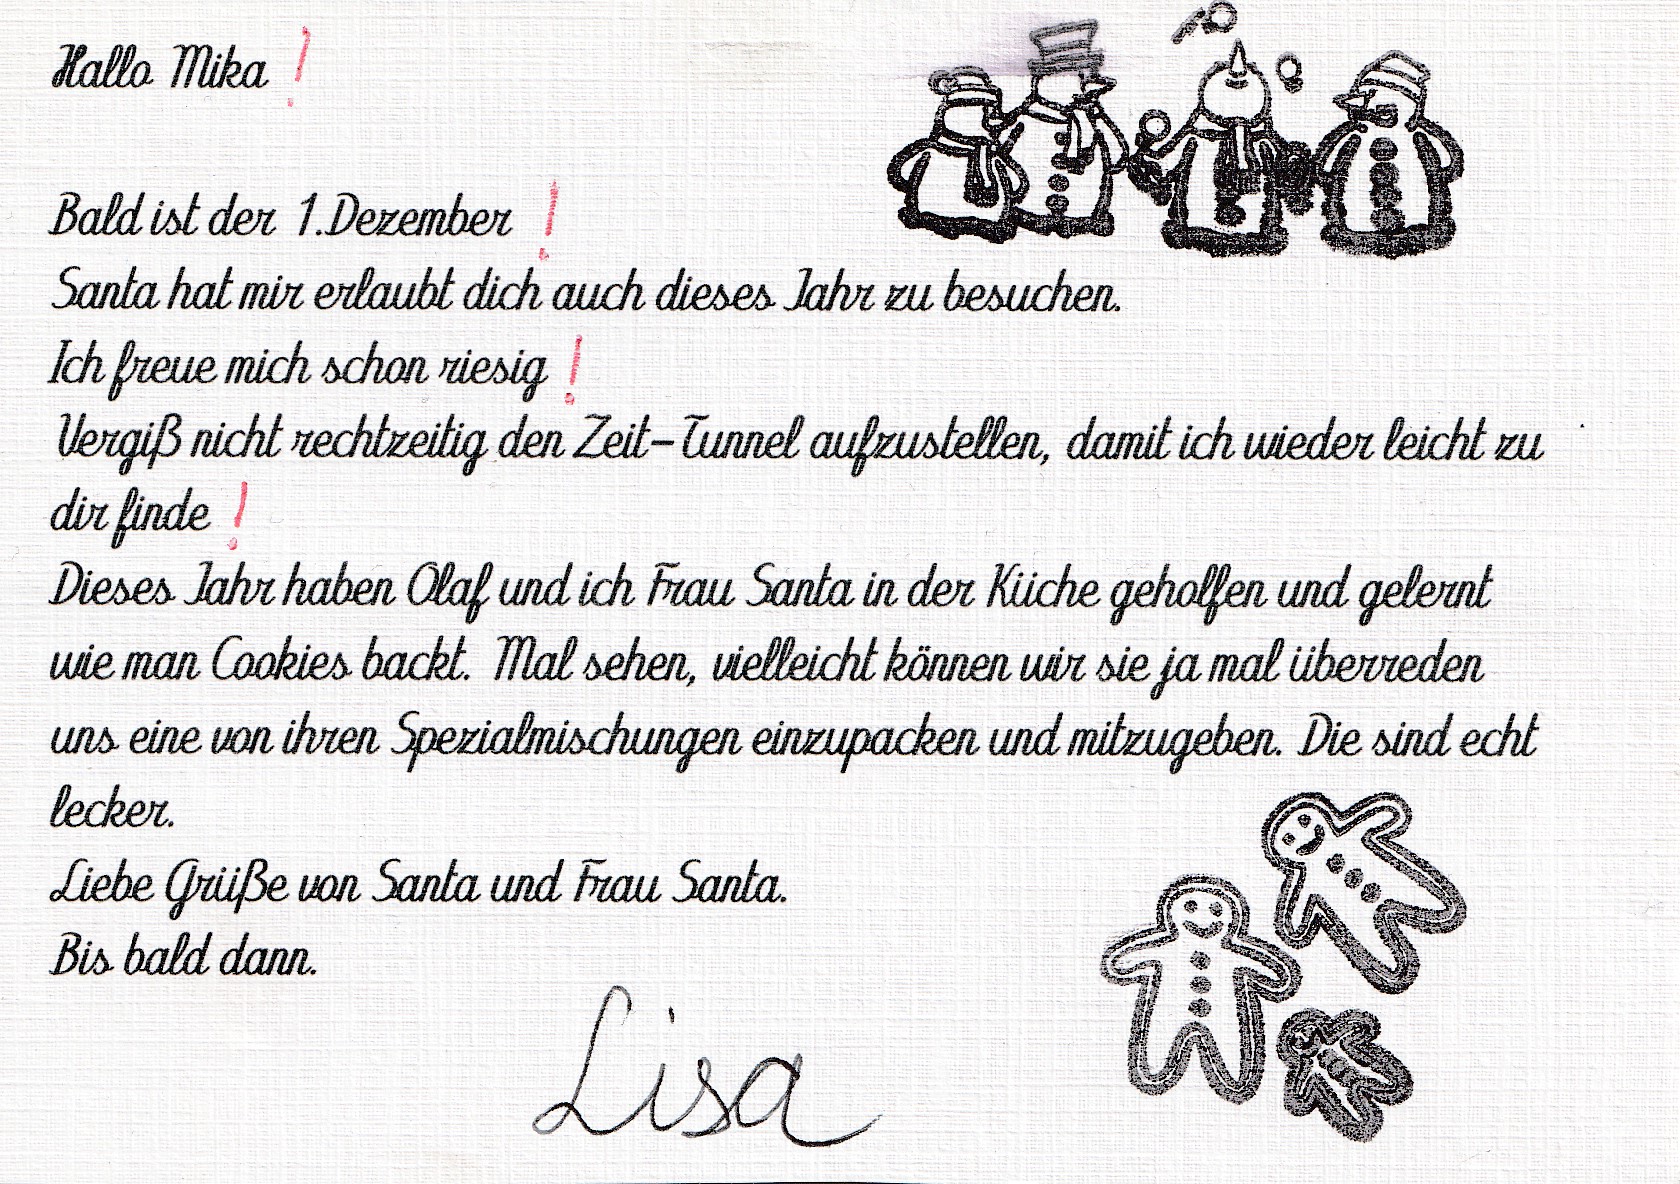 Hallo Mika !
Bald ist der 1.Dezember !
Santa hat mir erlaubt dich auch dieses Jahr zu besuchen.
Ich freue mich schon riesig !
Vergiß nicht rechtzeitig den Zeit-Tunnel aufzustellen, damit ich wieder leicht zu
dir finde !
Dieses Jahr haben Olaf und ich Frau Santa in der Küche geholfen und gelernt
wie man Cookies backt. Mal sehen, vielleicht können wir sie ja mal überreden
uns eine von ihren Spezialmischungen einzupacken und mitzugeben. Die sind echt
lecker.
Liebe Grüße von Santa und Frau Santa.
Bis bald dann.
Lisa